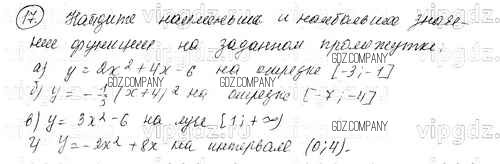 17. Найдите наименьшее и наибольшее значе-
ние функции на заданном промежутке:
а) y = 2x² + 4x - 6 на отрезке [-3; -1]
б) y = -1/3 (x+4)² на отрезке [-7; -4]
в) y = 3x² - 6 на луче [1; +∞)
г) y = -2x² + 8x на интервале (0; 4).
GDZ.COMPANY
vipgdz.com